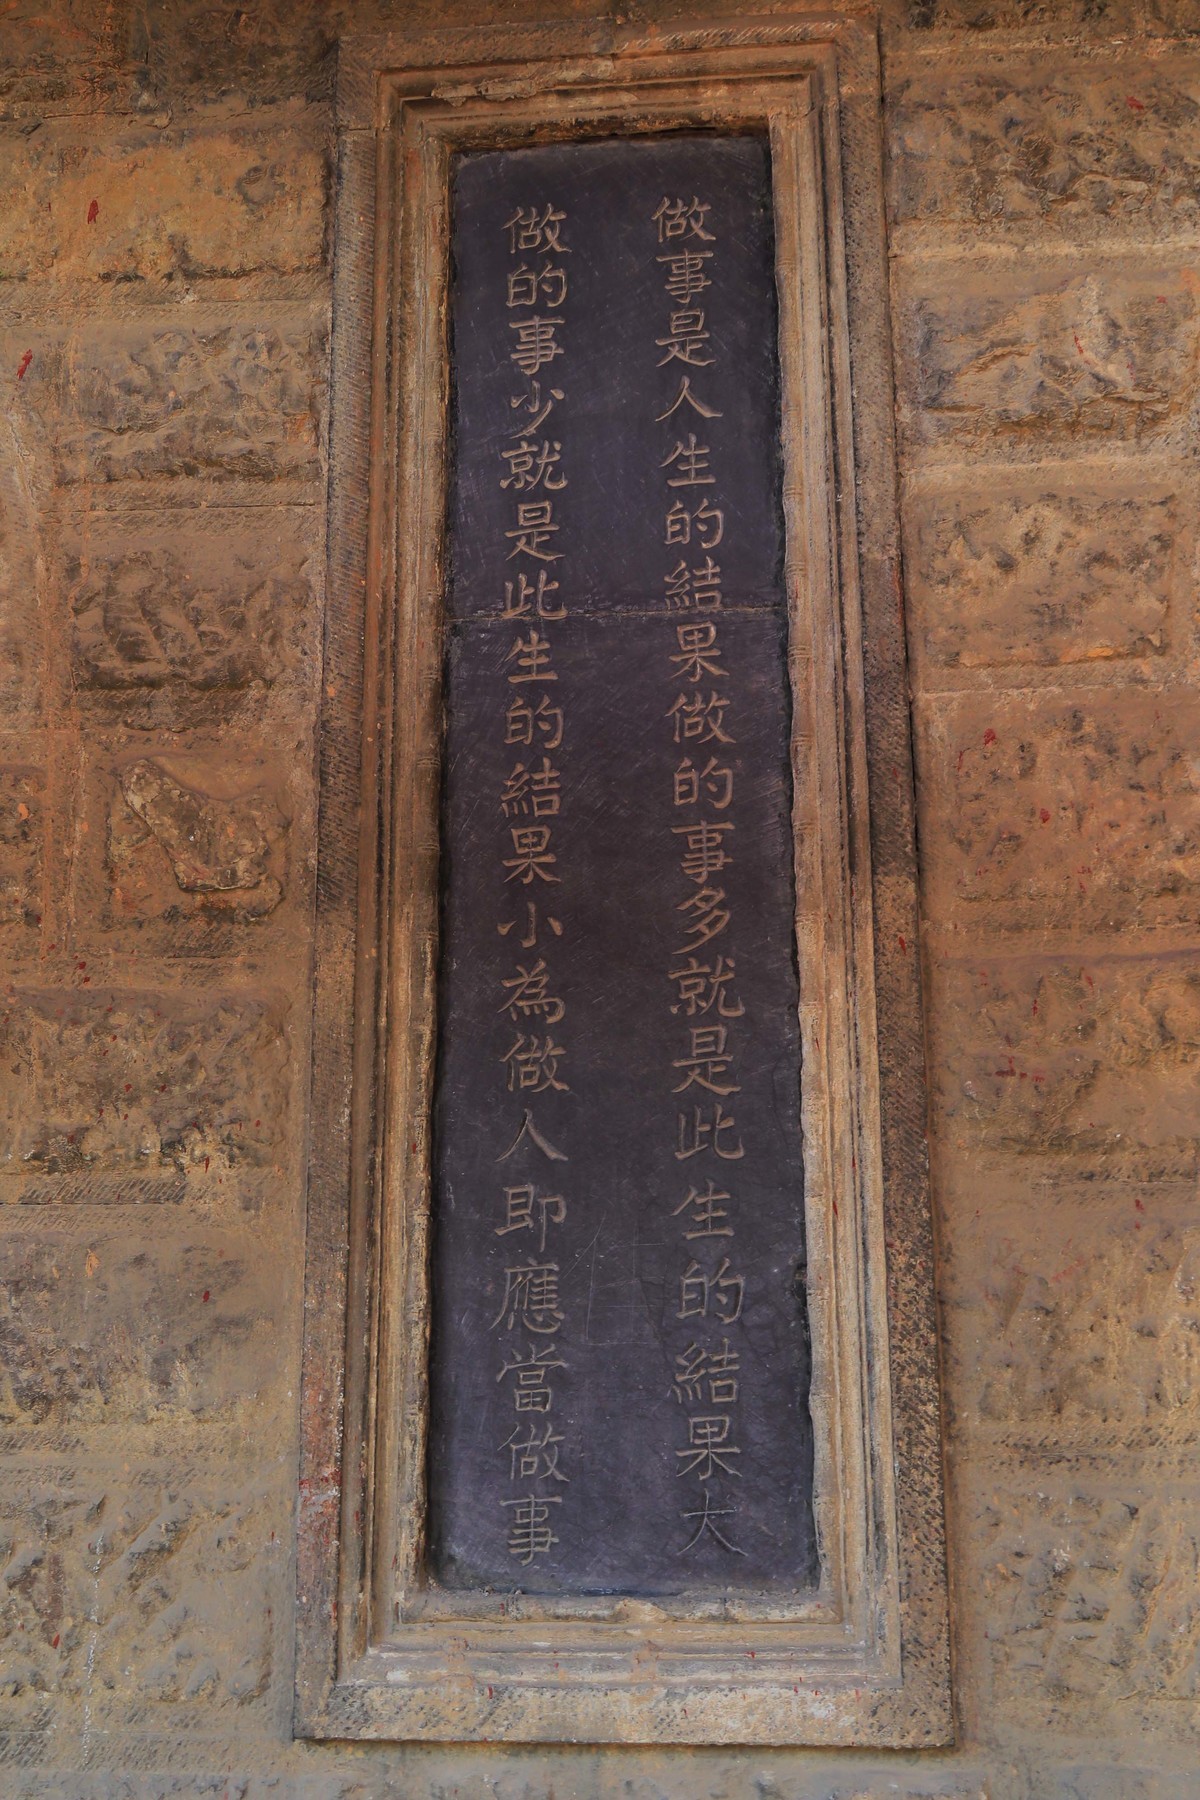 做事是人生的結果做的事多就是此生的結果大
做的事少就是此生的結果小為做人即應當做事